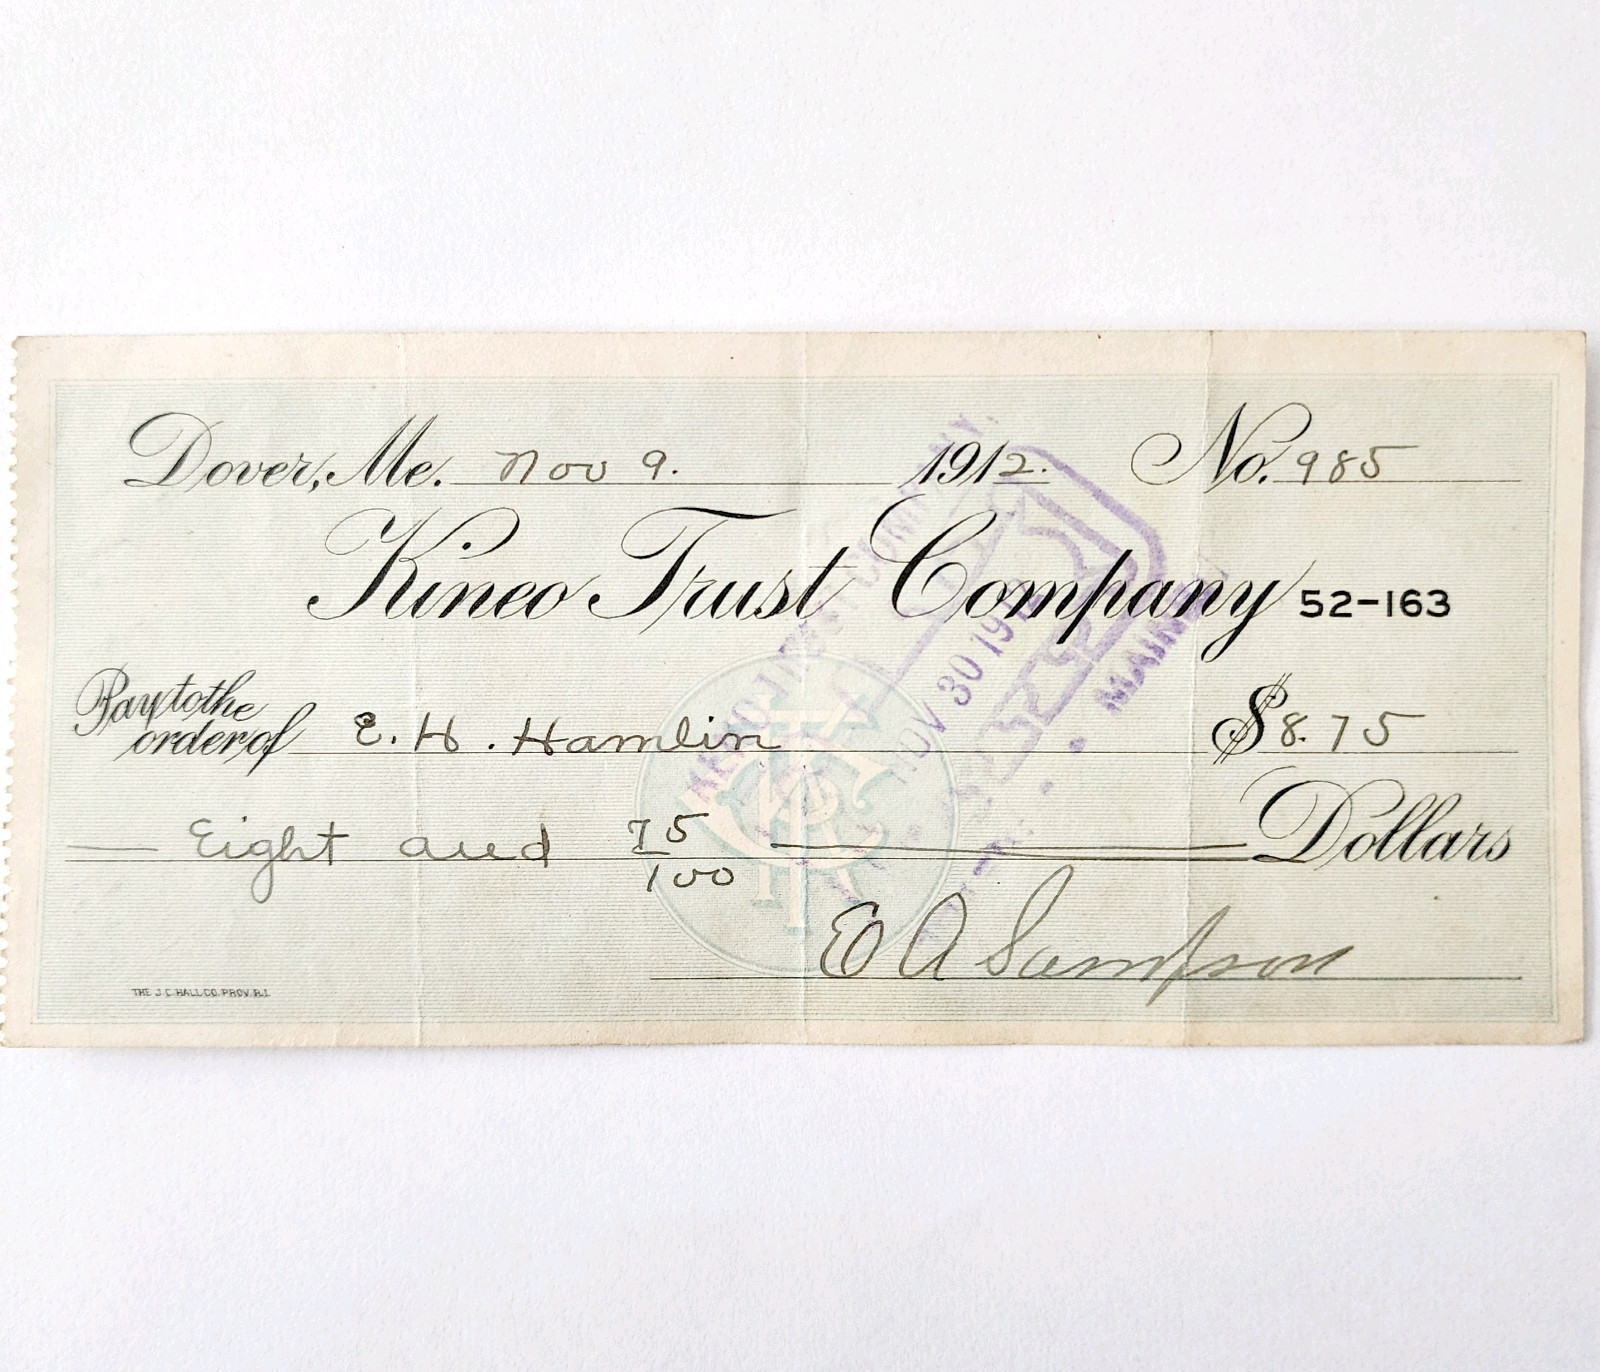 Dover, Me. Nov 9. 1912. No. 985
Kineo Trust Company 52-163
Pay to the order of E. H. Hamlin $8.75
Eight and 75/100 Dollars
E A Sampson
THE J.C. HALL CO. PROV. R.I.
NOV 30 1912
MAINE